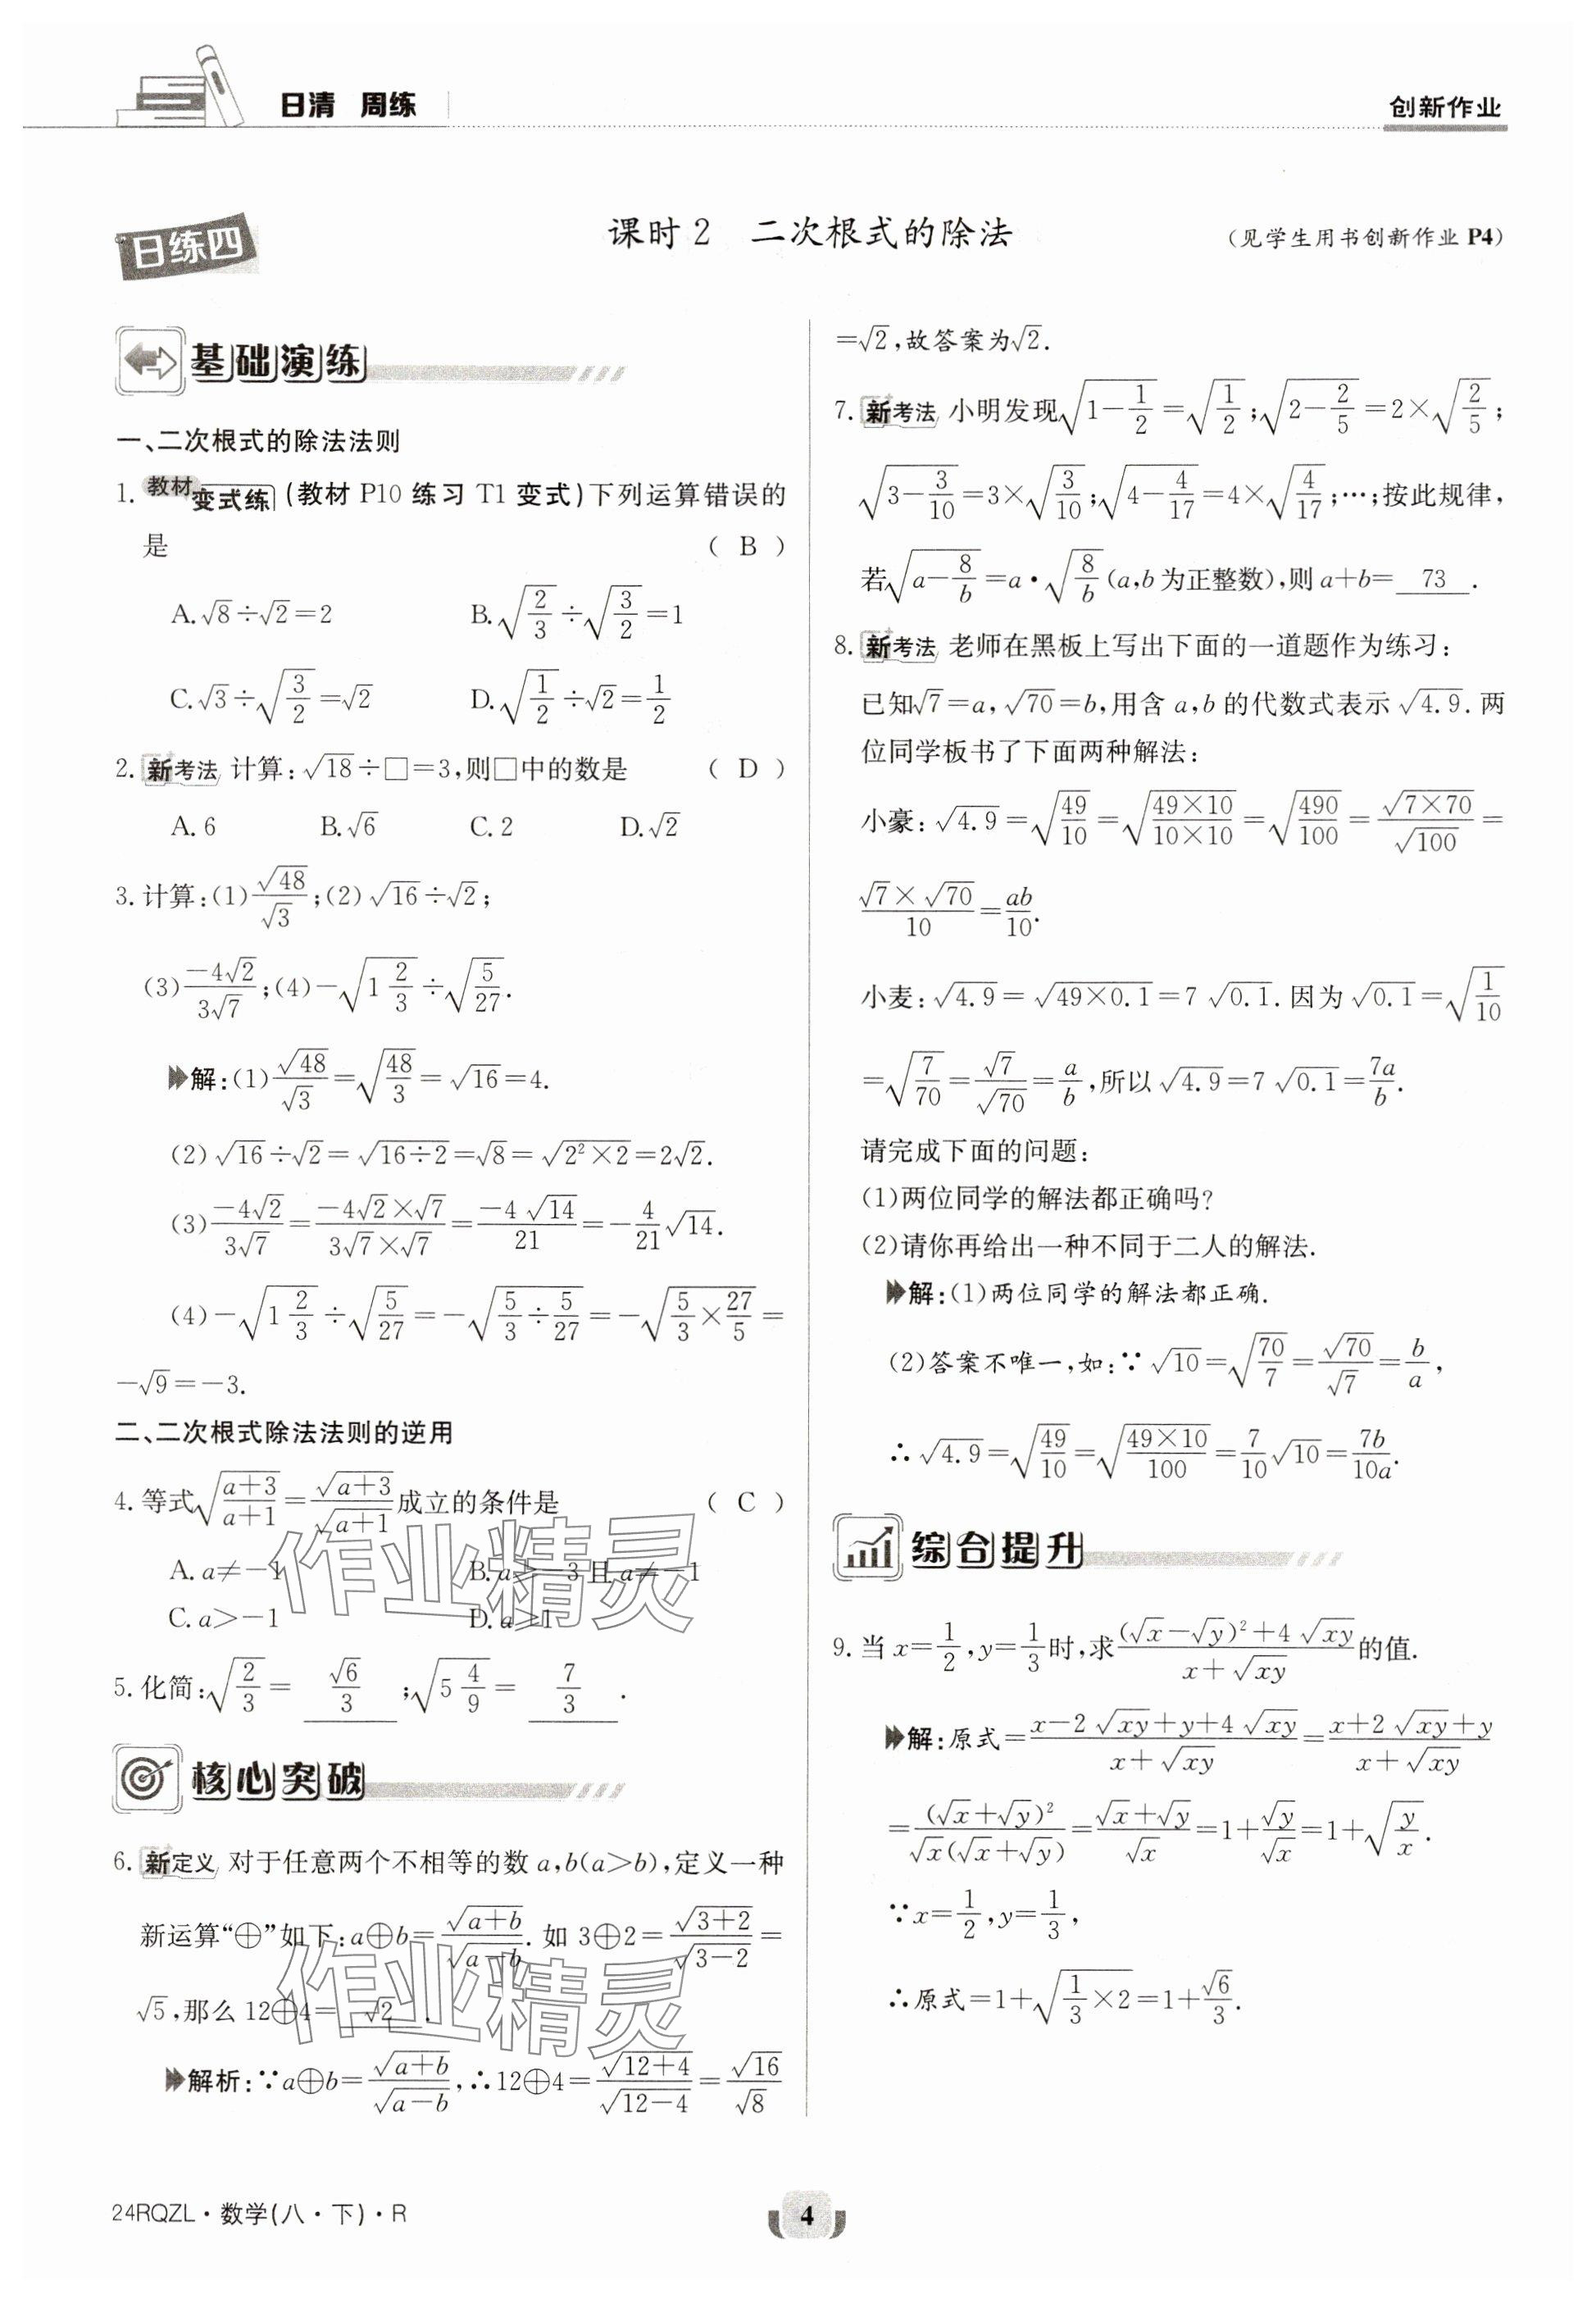 日清 周练
创新作业
日练四
课时2 二次根式的除法
(见学生用书创新作业 P4)
基础演练
一、二次根式的除法法则
1. 教材变式练 (教材 P10 练习 T1 变式)下列运算错误的
是 ( B )
A.√8÷√2=2 B.√(2/3)÷√(3/2)=1
C.√3÷√(3/2)=√2 D.√(1/2)÷√2=1/2
2. 新考法 计算:√18÷□=3,则□中的数是 ( D )
A.6 B.√6 C.2 D.√2
3.计算:(1)√48/√3;(2)√16÷√2;
(3)(-4√2)/(3√7);(4)-√(1 2/3)÷√(5/27).
解:(1)√48/√3=√(48/3)=√16=4.
(2)√16÷√2=√(16÷2)=√8=√(2²×2)=2√2.
(3)(-4√2)/(3√7)=(-4√2×√7)/(3√7×√7)=(-4√14)/21=-(4/21)√14.
(4)-√(1 2/3)÷√(5/27)=-√(5/3÷5/27)=-√(5/3×27/5)=
-√9=-3.
二、二次根式除法法则的逆用
4.等式√((a+3)/(a+1))=√(a+3)/√(a+1)成立的条件是 ( C )
A.a≠-1 B.a≥-3且a≠-1
C.a>-1 D.a≥1
5.化简:√(2/3)= √6/3 ;√(5 4/9)= 7/3 .
核心突破
6. 新定义 对于任意两个不相等的数a,b(a>b),定义一种
新运算“⊕”如下:a⊕b=√(a+b)/√(a-b). 如 3⊕2=√(3+2)/√(3-2)=
√5,那么 12⊕4= √2 .
解析:∵a⊕b=√(a+b)/√(a-b),∴12⊕4=√(12+4)/√(12-4)=√16/√8
=√2,故答案为√2.
7. 新考法 小明发现√(1-1/2)=√(1/2);√(2-2/5)=2×√(2/5);
√(3-3/10)=3×√(3/10);√(4-4/17)=4×√(4/17);…;按此规律,
若√(a-8/b)=a·√(8/b)(a,b为正整数),则a+b= 73 .
8. 新考法 老师在黑板上写出下面的一道题作为练习:
已知√7=a,√70=b,用含 a,b 的代数式表示√4.9. 两
位同学板书了下面两种解法:
小豪:√4.9=√(49/10)=√((49×10)/(10×10))=√(490/100)=√(7×70)/√100=
(√7×√70)/10=ab/10.
小麦:√4.9=√(49×0.1)=7√0.1. 因为√0.1=√(1/10)
=√(7/70)=√7/√70=a/b,所以√4.9=7√0.1=7a/b.
请完成下面的问题:
(1)两位同学的解法都正确吗?
(2)请你再给出一种不同于二人的解法.
解:(1)两位同学的解法都正确.
(2)答案不唯一,如:∵√10=√(70/7)=√70/√7=b/a,
∴√4.9=√(49/10)=√((49×10)/100)=(7/10)√10=7b/10a.
综合提升
9.当x=1/2,y=1/3时,求((√x-√y)²+4√xy)/(x+√xy)的值.
解:原式=(x-2√xy+y+4√xy)/(x+√xy)=(x+2√xy+y)/(x+√xy)
=(√x+√y)²/(√x(√x+√y))=(√x+√y)/√x=1+√y/√x=1+√(y/x).
∵x=1/2,y=1/3,
∴原式=1+√(1/3×2)=1+√6/3.
作业精灵
作业精灵
24RQZL·数学(八·下)·R
4